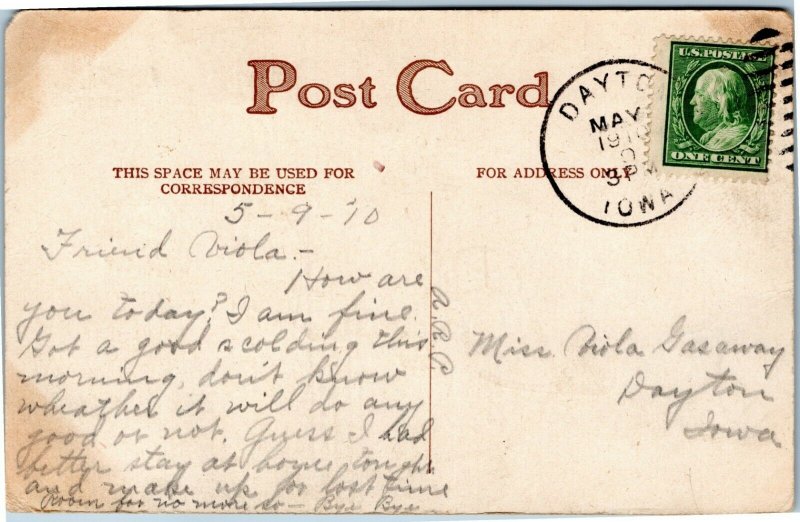 Post Card
THIS SPACE MAY BE USED FOR
CORRESPONDENCE
FOR ADDRESS ONLY
DAYTO
MAY
1910
3 PM
IOWA
U.S. POSTAGE
ONE CENT
5-9-10
Friend Viola.-
How are
you today? I am fine.
Got a good scolding this
morning, don't know
wheather it will do any
good or not. Guess I had
better stay at home tonight
and make up for lost time
Room for no more so - Bye Bye
Miss Viola Gasaway
Dayton
Iowa